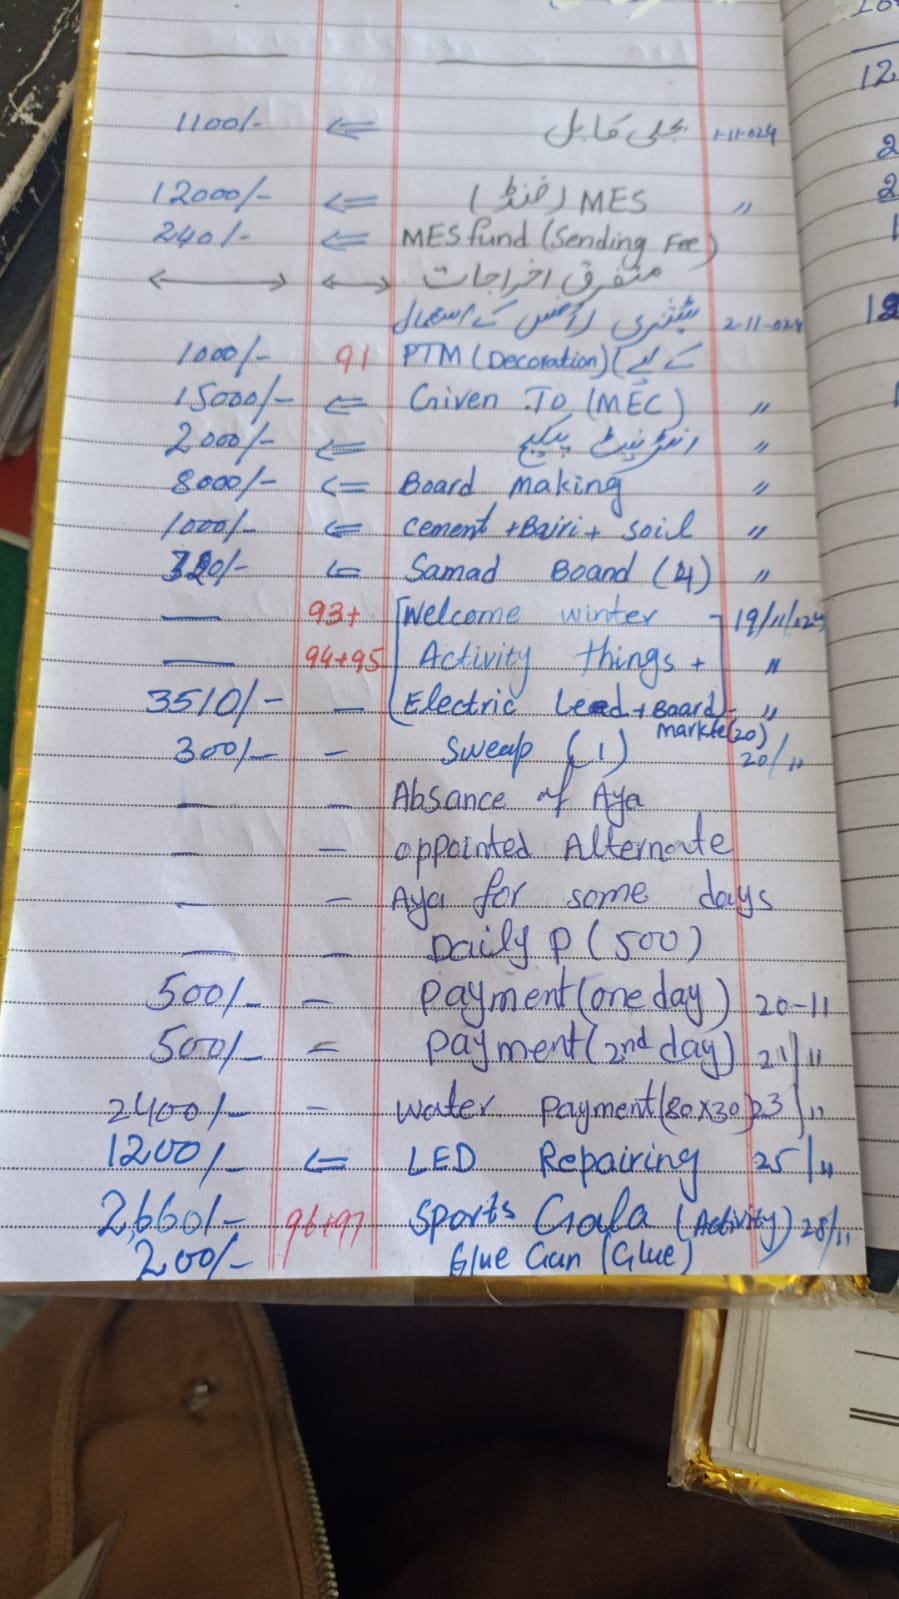 1100/- ⇐ بجلی کا بل 1-11-024
12000/- ⇐ MES (فنڈ) "
240/- ⇐ MES fund (Sending Fee)
متفرق اخراجات
سٹیشنری آفس کے استعمال 2-11-024
1000/- 91 PTM (Decoration) (کے لیے
15000/- ⇐ Given To (MEC) "
2000/- ⇐ انٹرنیٹ پیکیج "
8000/- ⇐ Board making "
1000/- ⇐ cement + Bairi + soil "
320/- ⇐ Samad Board (4) "
— 93+ [Welcome winter 19/11/024
— 94+95 Activity things + "
3510/- — Electric Lead + Board "
markte(20)
300/- - Sweap (1) 20/"
— — Absance of Aya
— — oppointed Alternate
— — Aya for some days
— — Daily P (500)
500/- — Payment (one day) 20-11
500/- = Payment (2nd day) 21/11
2400/- - water Payment (80x30) 23/"
1200/- ⇐ LED Repairing 25/"
2,660/- 96+97 Sports Gala (Activity) 28/11
200/- Glue Gun (Glue)
12
2
2
1